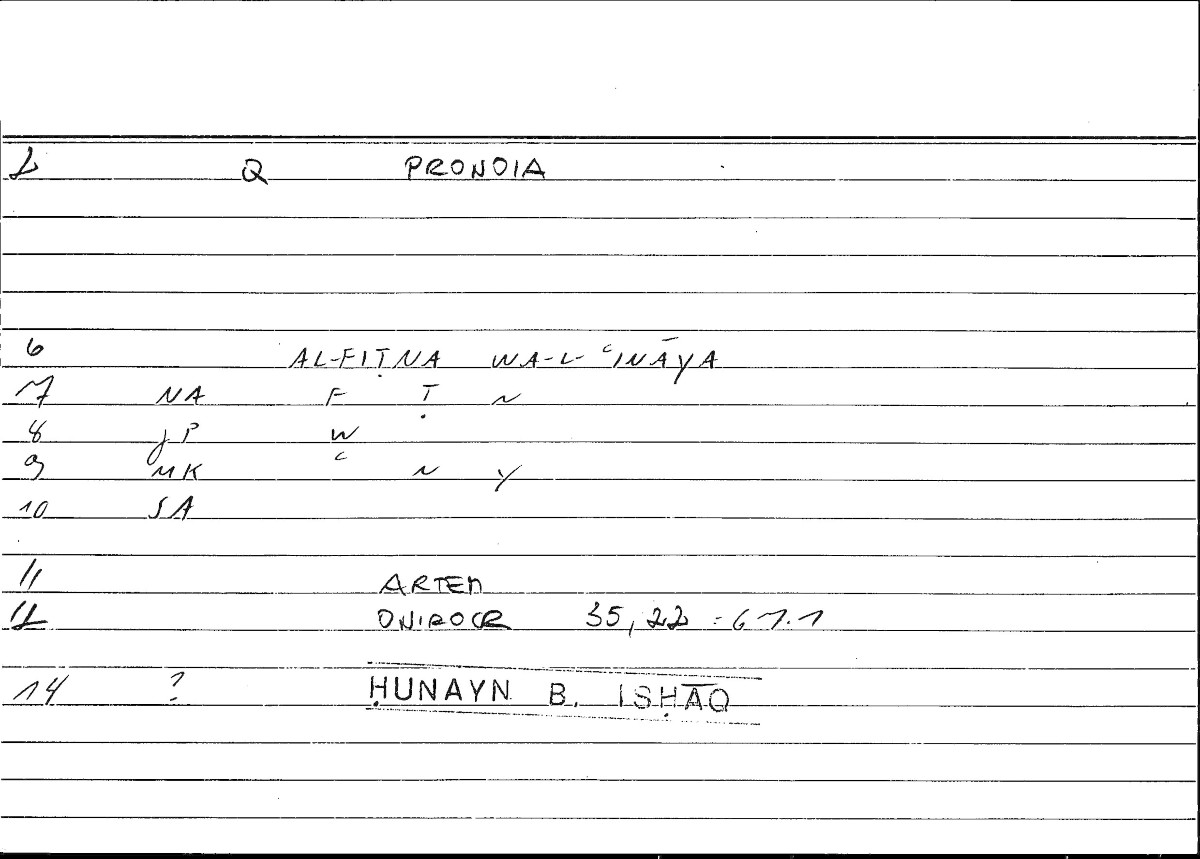 1 Q PRONOIA
6 AL-FIṬNA WA-L-ʿINĀYA
7 NA F Ṭ N
8 JP W
9 MK ʿ N Y
10 SA
11 ARTEM
12 ONIROCR 35,22 : 67.1
14 ? ḤUNAYN B. ISḤĀQ